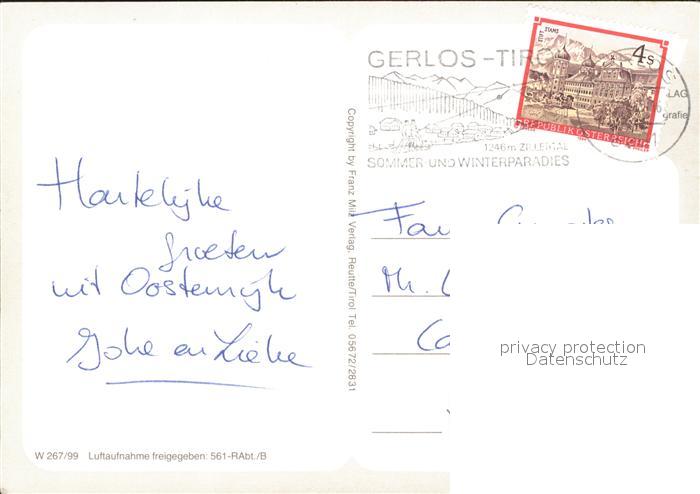 GERLOS-TIROL
1246m ZILLERTAL
SOMMER-UND WINTERPARADIES
STIFT STAMS
4s
REPUBLIK ÖSTERREICH
LAG
grafie
Copyright by Franz Milz Verlag, Reutte/Tirol Tel. 05672/2831
Hartelijke
groeten
uit Oostenrijk
Joke en Lieke
Fam
Mr.
W 267/99 Luftaufnahme freigegeben: 561-RAbt./B
privacy protection
Datenschutz